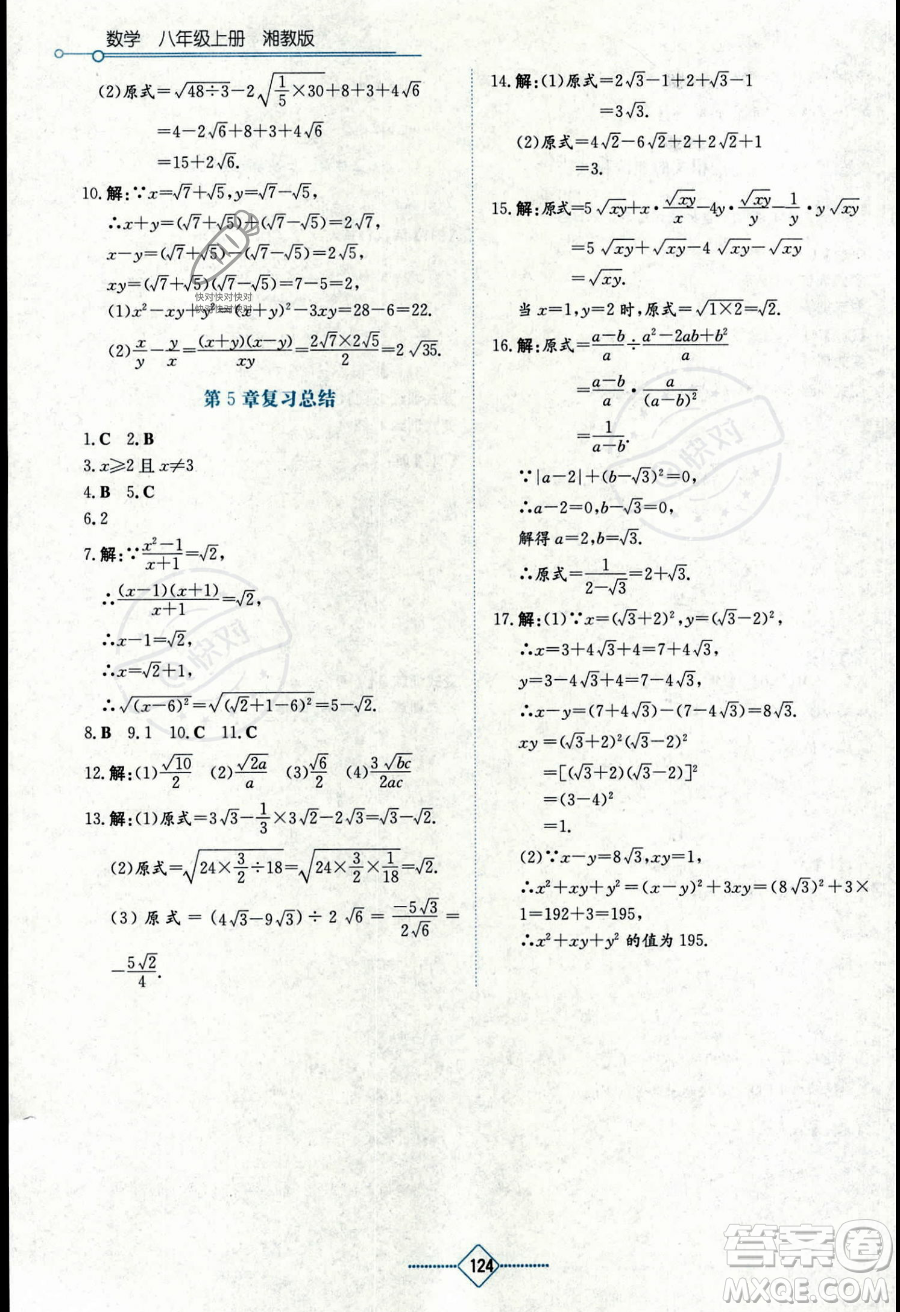 数学 八年级上册 湘教版
(2)原式=√(48÷3)-2√(1/5×30)+8+3+4√6
=4-2√6+8+3+4√6
=15+2√6.
10.解:∵x=√7+√5,y=√7-√5,
∴x+y=(√7+√5)+(√7-√5)=2√7,
x-y=(√7+√5)-(√7-√5)=2√5,
xy=(√7+√5)(√7-√5)=7-5=2,
(1)x²-xy+y²=(x+y)²-3xy=28-6=22.
(2)x/y-y/x=(x+y)(x-y)/xy=2√7×2√5/2=2√35.
第5章复习总结
1.C 2.B
3.x⩾2且x≠3
4.B 5.C
6.2
7.解:∵(x²-1)/(x+1)=√2,
∴(x-1)(x+1)/(x+1)=√2,
∴x-1=√2,
∴x=√2+1,
∴√(x-6)²=√(√2+1-6)²=5-√2.
8.B 9.1 10.C 11.C
12.解:(1)√10/2 (2)√2a/a (3)√6/2 (4)3√bc/2ac
13.解:(1)原式=3√3-1/3×3√2=√3-√2.
(2)原式=√(24×3/2÷18)=√(24×3/2×1/18)=√2.
(3)原式=(4√3-9√3)÷2√6=-5√3/2√6=
-5√2/4.
14.解:(1)原式=2√3-1+2+√3-1
=3√3.
(2)原式=4√2-6√2+2+2√2+1
=3.
15.解:原式=5√xy+x·√xy/x-4y·√xy/y-1/y·y√xy
=5√xy+√xy-4√xy-√xy
=√xy.
当x=1,y=2时,原式=√(1×2)=√2.
16.解:原式=(a-b)/a÷(a²-2ab+b²)/a
=(a-b)/a·a/(a-b)²
=1/(a-b).
∵|a-2|+(b-√3)²=0,
∴a-2=0,b-√3=0,
解得a=2,b=√3.
∴原式=1/(2-√3)=2+√3.
17.解:(1)∵x=(√3+2)²,y=(√3-2)²,
∴x=3+4√3+4=7+4√3,
y=3-4√3+4=7-4√3,
∴x-y=(7+4√3)-(7-4√3)=8√3.
xy=(√3+2)²(√3-2)²
=[(√3+2)(√3-2)]²
=(3-4)²
=1.
(2)∵x-y=8√3,xy=1,
∴x²+xy+y²=(x-y)²+3xy=(8√3)²+3×
1=192+3=195,
∴x²+xy+y²的值为195.
124
快对快对快对
快对快对快对
快对
快对
答案卷
MXQE.COM